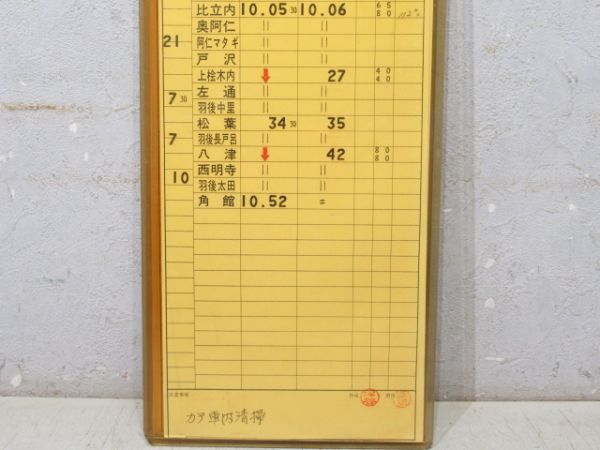 比立内 10.05 30 10.06 65 80
奥阿仁 || ||
21 阿仁マタギ || ||
戸沢 || ||
上桧木内 ↓ 27 40 40
左通 || ||
7 30 羽後中里 || ||
松葉 34 30 35
7 羽後長戸呂 || ||
八津 ↓ 42 80 80
西明寺 || ||
10 羽後太田 || ||
角館 10.52 =
注意事項
カラ車内清掃